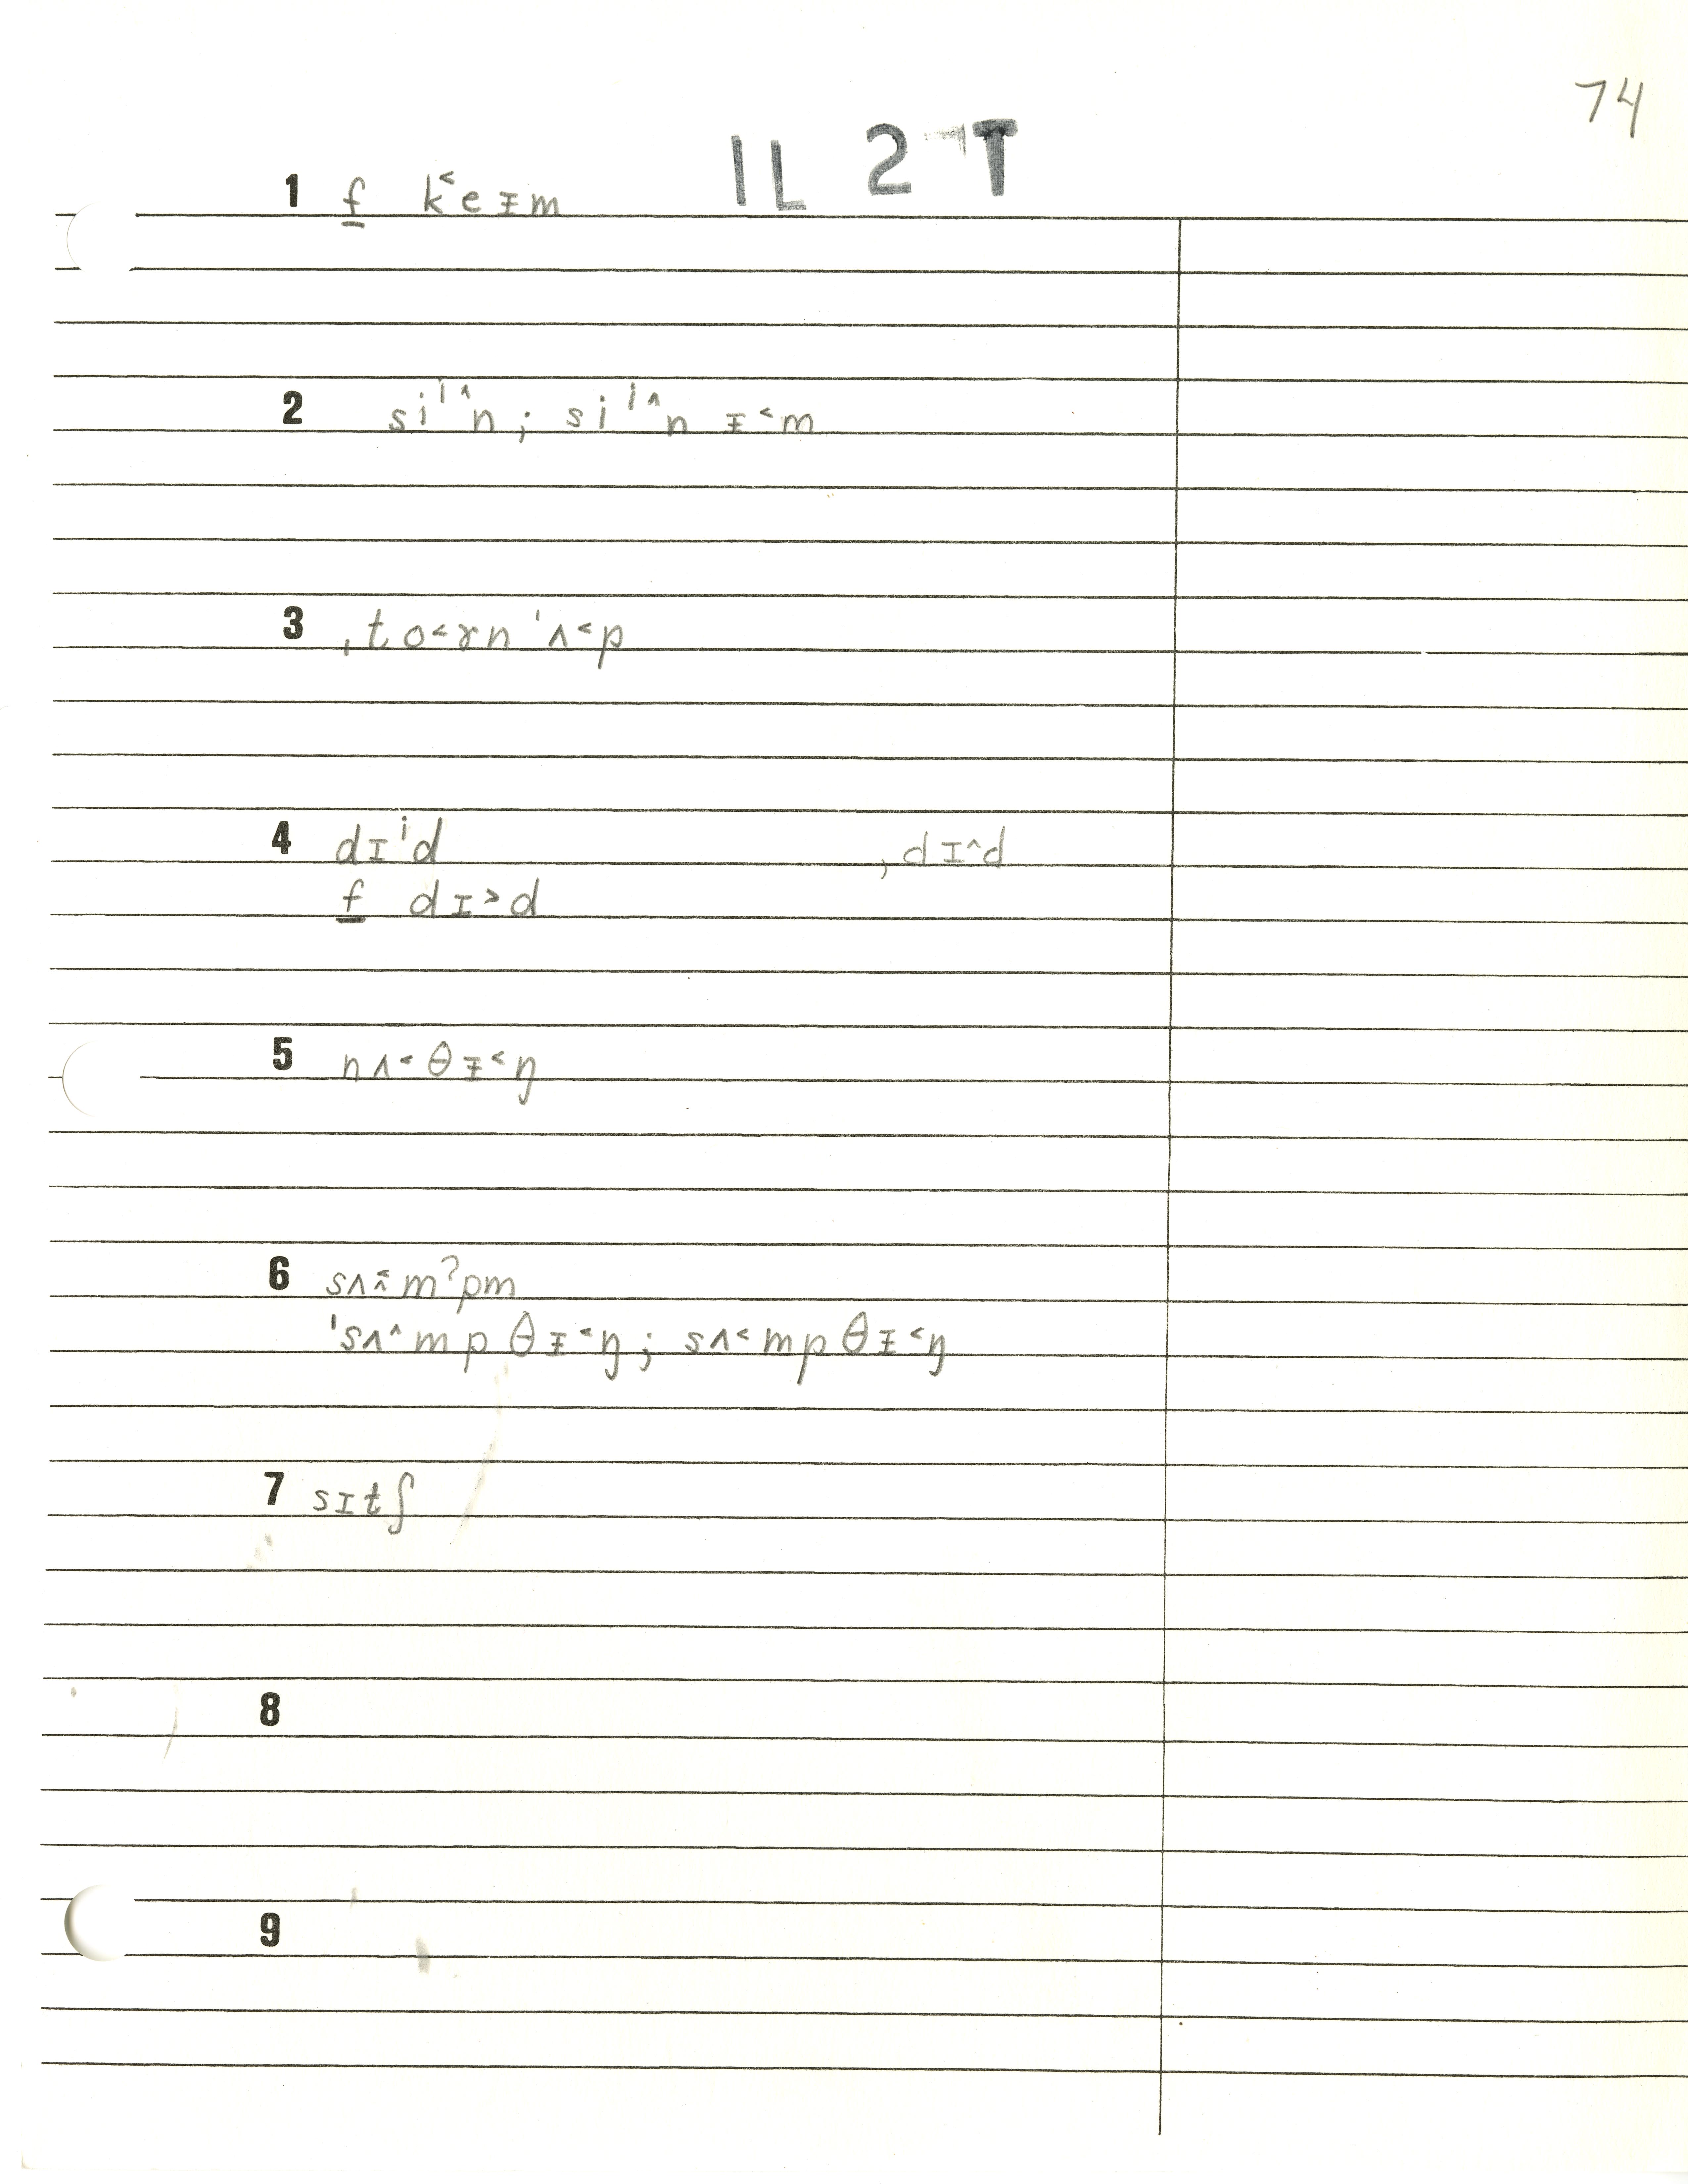 74
IL 2 T
1 f k˂eᵻm
2 siⁱ^n; siⁱ^n ᵻ˂m
3 ˌto˂ɤn ˈʌ˂p
4 dɪⁱd ˌdɪ^d
f dɪ˃d
5 nʌ˂θᵻ˂ŋ
6 sʌ˂̭mˀpm
ˈsʌ^mpθᵻ˂ŋ; sʌ˂mpθᵻ˂ŋ
7 sɪtʃ
8
9